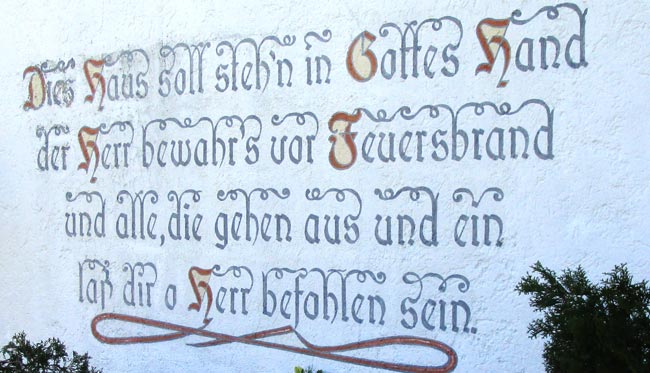 Dies Haus soll steh'n in Gottes Hand
der Herr bewahr's vor Feuersbrand
und alle, die gehen aus und ein
laß dir o Herr befohlen sein.